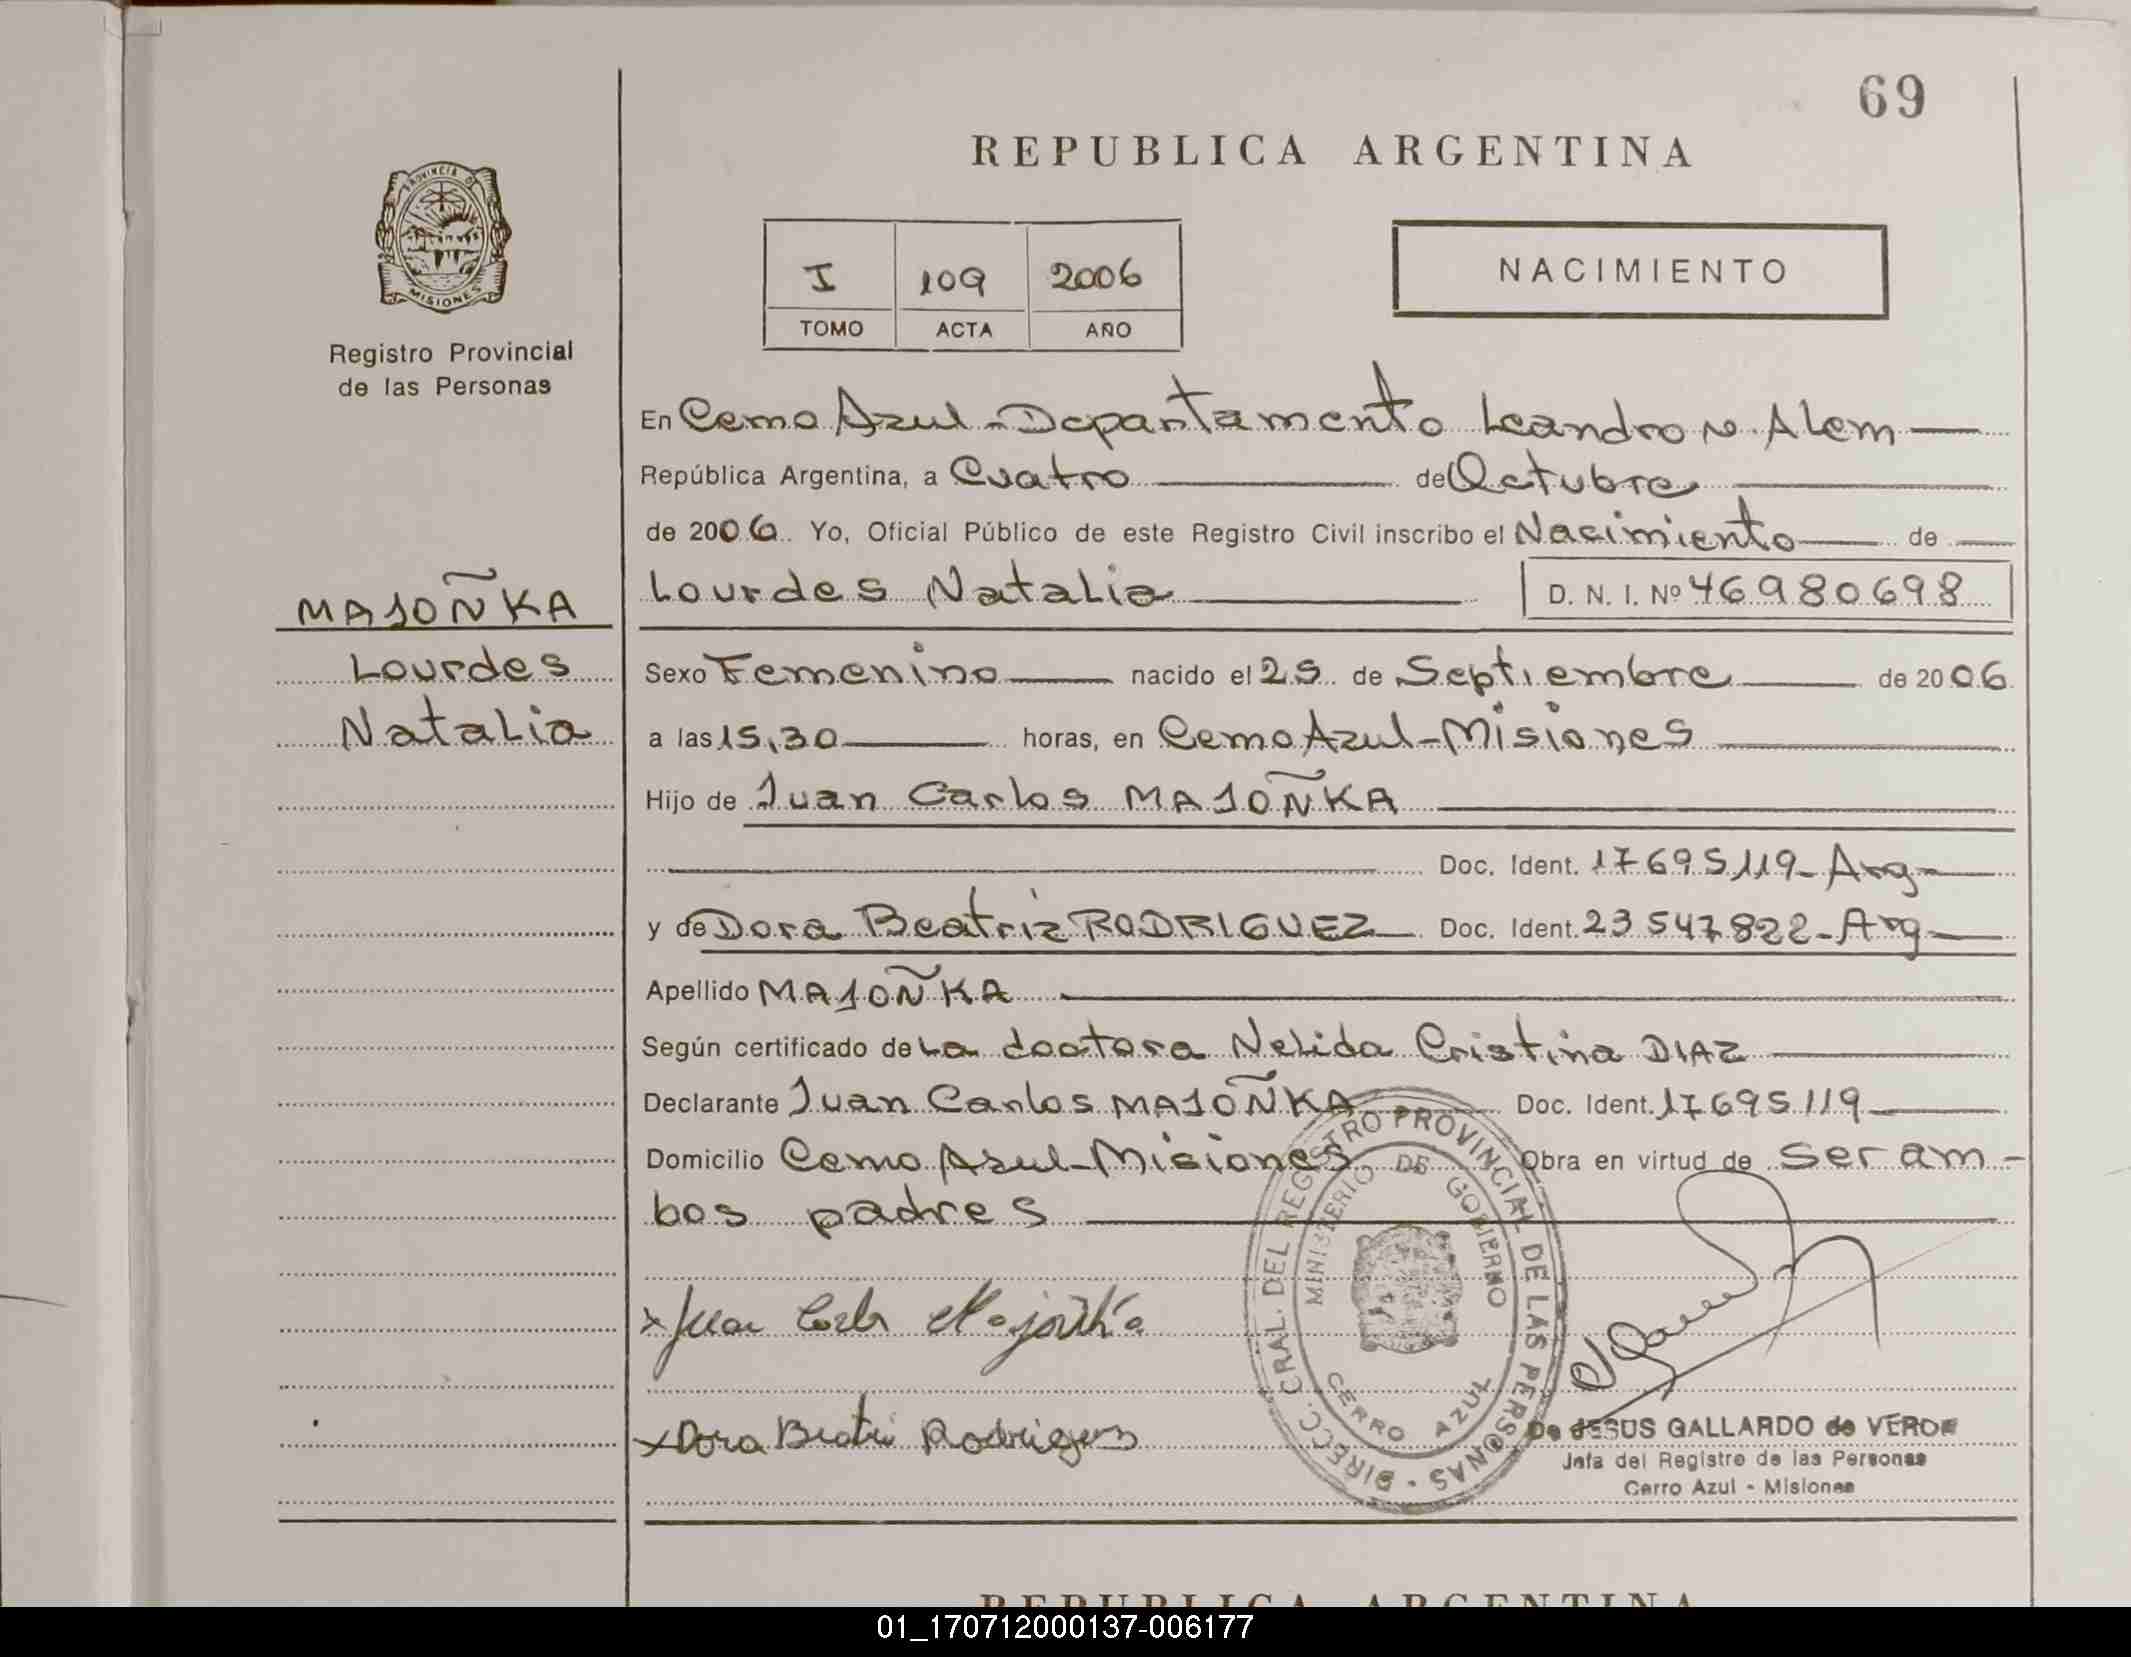 69
REPUBLICA ARGENTINA
PROVINCIA DE
MISIONES
Registro Provincial
de las Personas
I 109 2006
TOMO ACTA AÑO
NACIMIENTO
En Cerro Azul - Departamento Leandro N. Alem
República Argentina, a Cuatro de Octubre
de 2006. Yo, Oficial Público de este Registro Civil inscribo el Nacimiento de
Lourdes Natalia D. N. I. Nº 46980698
MAJOÑKA
Lourdes
Natalia
Sexo Femenino nacido el 25 de Septiembre de 2006
a las 15,30 horas, en Cerro Azul - Misiones
Hijo de Juan Carlos MAJOÑKA
Doc. Ident. 17695119 - Arg
y de Dora Beatriz RODRIGUEZ Doc. Ident. 23547822 - Arg
Apellido MAJOÑKA
Según certificado de La doctora Nelida Cristina DIAZ
Declarante Juan Carlos MAJOÑKA Doc. Ident. 17695119
Domicilio Cerro Azul - Misiones Obra en virtud de ser am-
bos padres
x Juan Carlos Majoñka
x Dora Beatriz Rodriguez
DIRECC. GRAL. DEL REGISTRO PROVINCIAL DE LAS PERSONAS -
MINISTERIO DE GOBIERNO
CERRO AZUL
De JESUS GALLARDO de VERON
Jefa del Registro de las Personas
Cerro Azul - Misiones
REPUBLICA ARGENTINA
01_170712000137-006177